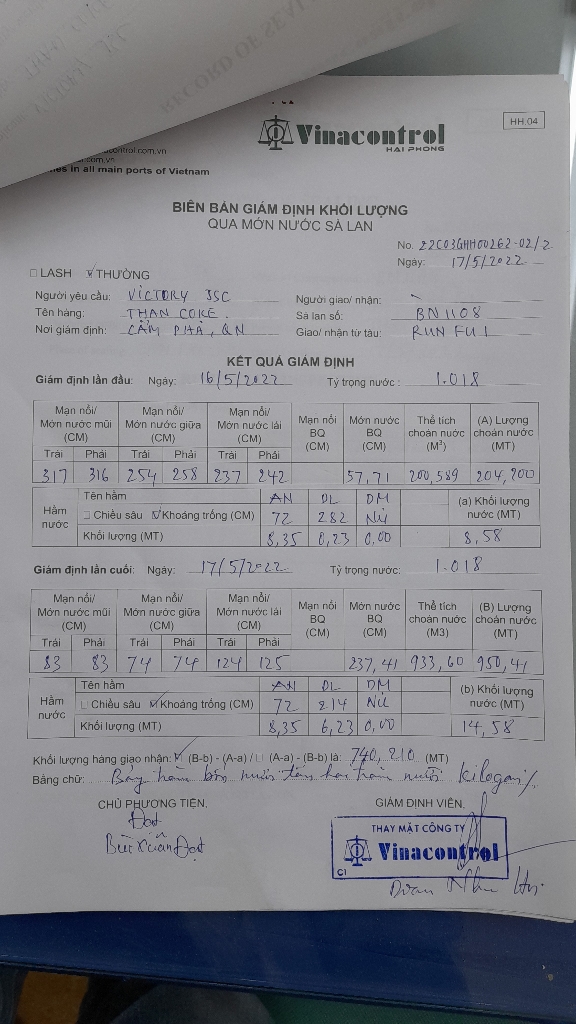 RECORD OF SEAL
HH.04
Vinacontrol
HAI PHONG
control.com.vn
.com.vn
es in all main ports of Vietnam
BIÊN BẢN GIÁM ĐỊNH KHỐI LƯỢNG
QUA MỚN NƯỚC SÀ LAN
No. 22C03GHH00262-02/2
Ngày: 17/5/2022
LASH THƯỜNG
Người yêu cầu: VICTORY JSC Người giao/ nhận:
Tên hàng: THAN COKE. Sà lan số: BN 1108
Nơi giám định: CẨM PHẢ, QN Giao/ nhận từ tàu: RUN FU 1
KẾT QUẢ GIÁM ĐỊNH
Giám định lần đầu: Ngày: 16/5/2022 Tỷ trọng nước : 1.018
Mạn nổi/ Mớn nước mũi (CM) Mạn nổi/ Mớn nước giữa (CM) Mạn nổi/ Mớn nước lái (CM) Mạn nổi BQ (CM) Mớn nước BQ (CM) Thể tích choán nước (M³) (A) Lượng choán nước (MT)
Trái Phải Trái Phải Trái Phải
317 316 254 258 237 242 57,71 200,589 204,200
Hầm nước Tên hầm AN DL DM (a) Khối lượng nước (MT)
Chiều sâu Khoảng trống (CM) 72 282 Nil
Khối lượng (MT) 8,35 0,23 0,00 8,58
Giám định lần cuối: Ngày: 17/5/2022 Tỷ trọng nước: 1.018
Mạn nổi/ Mớn nước mũi (CM) Mạn nổi/ Mớn nước giữa (CM) Mạn nổi/ Mớn nước lái (CM) Mạn nổi BQ (CM) Mớn nước BQ (CM) Thể tích choán nước (M3) (B) Lượng choán nước (MT)
Trái Phải Trái Phải Trái Phải
83 83 74 74 124 125 237,41 933,60 950,41
Hầm nước Tên hầm AN DL DM (b) Khối lượng nước (MT)
Chiều sâu Khoảng trống (CM) 72 214 Nil
Khối lượng (MT) 8,35 6,23 0,00 14,58
Khối lượng hàng giao nhận: (B-b) - (A-a) / (A-a) - (B-b) là: 740,210 (MT)
Bằng chữ: Bảy trăm bốn mươi tấn hai trăm mười kilogam/.
CHỦ PHƯƠNG TIỆN, GIÁM ĐỊNH VIÊN,
Đạt
Bùi Xuân Đạt
THAY MẶT CÔNG TY
Vinacontrol
CI
Đoàn